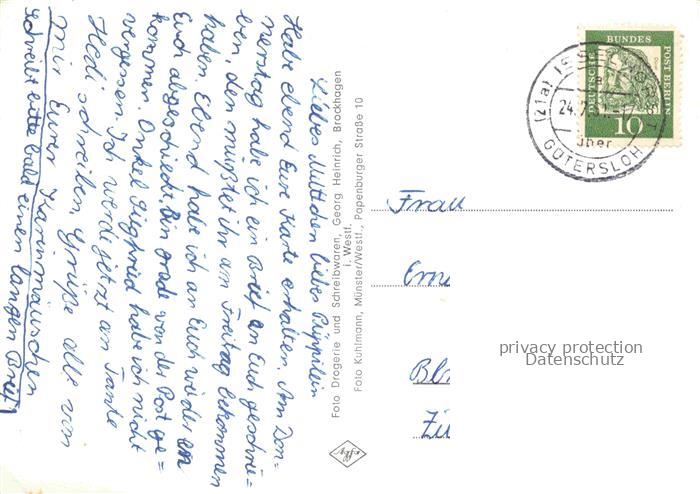 Liebes Muttchen liebes Püppilein
Habe ebend Eure Karte erhalten. Am Don=
nerstag habe ich ein Brief an Euch geschrie=
ben, den müßtet ihr am Freitag bekommen
haben. Ebend habe ich an Euch wieder en
Euch abgeschickt. Bin grade von der Post ge=
kommen. Onkel Siegfried habe ich nicht
vergessen. Ich werde jetzt an Tante
Hedi schreiben. Grüße alle von
mir Euer Karinmäuschen
schreibt bitte bald einen langen Brief
Foto Drogerie und Schreibwaren, Georg Heinrich, Brockhagen
i. Westf.
Foto Kuhlmann, Münster/Westf., Papenburger Straße 10
DEUTSCHE BUNDES POST BERLIN
10
(21a) ISSELHORST
über
GÜTERSLOH
Frau
privacy protection
Datenschutz